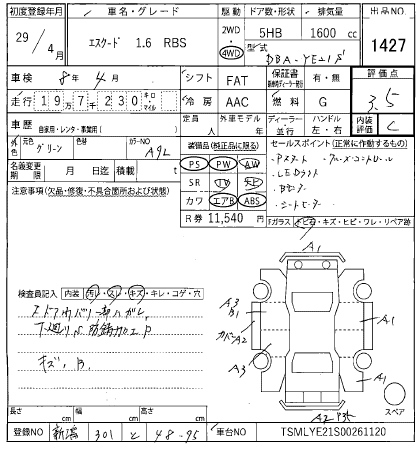 初度登録年月 車名・グレード 駆動 ドア数・形状 排気量 出品NO
29年4月 エスクード 1.6 RBS 2WD・4WD 5HB 1600 cc 1427
型式 DBA-YE21S
車検 8年4月 シフト FAT 保証書 有・無 評価点
走行 197,230 キロ・マイル 冷房 AAC 燃料 G 3.5
車歴 自家用・レンタ・事業用( ) 定員 人 外車モデル 年 ディーラー 並行 ハンドル 左・右 内装評価 C
外色 元色 グリーン 色替 カラーNO A9L
装備品(純正品に限る) セールスポイント(正常に作動するもの)
名義変更期限 月 日迄 積載 t
PS PW AW
SR TV ナビ
カワ エアB ABS
LEDライト
シートヒーター
R券 11,540 円
注意事項(欠品・修復・不具合箇所および状態)
Fガラス トビ石・キズ・ヒビ・ワレ・リペア跡
検査員記入 内装 汚レ・スレ・キズ・キレ・コゲ・穴
下廻りS 防錆加工P
キズ、B
A1
A3 B1
カバーA2
A3
A1
A1
A2
スペア
長さ cm 幅 cm 高さ cm
登録NO 新潟 301 と 48-95 車台NO TSMLYE21S00261120